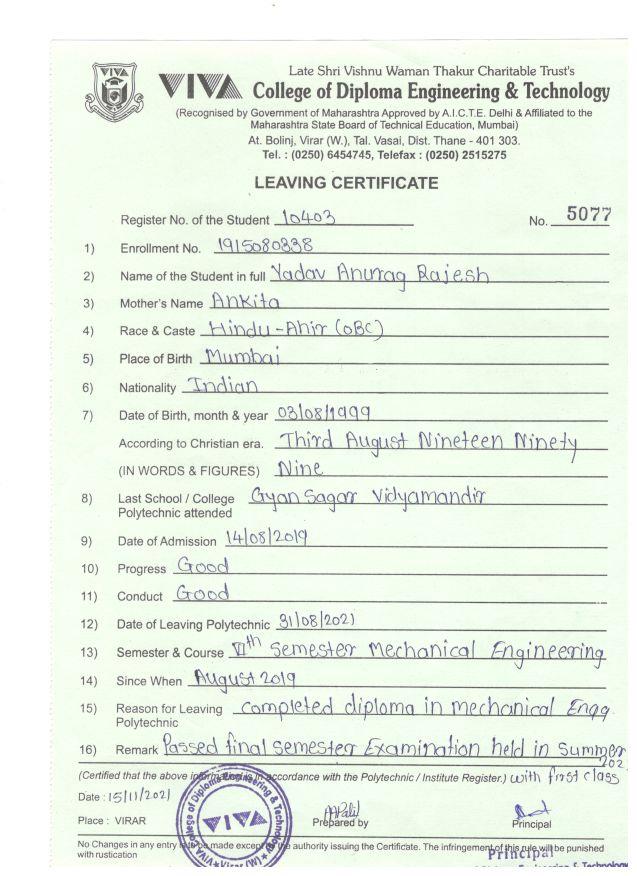 VIVA
VIVA
Late Shri Vishnu Waman Thakur Charitable Trust's
College of Diploma Engineering & Technology
(Recognised by Government of Maharashtra Approved by A.I.C.T.E. Delhi & Affiliated to the
Maharashtra State Board of Technical Education, Mumbai)
At. Bolinj, Virar (W.), Tal. Vasai, Dist. Thane - 401 303.
Tel. : (0250) 6454745, Telefax : (0250) 2515275
LEAVING CERTIFICATE
Register No. of the Student 10403 No. 5077
1) Enrollment No. 1915080338
2) Name of the Student in full Yadav Anurag Rajesh
3) Mother's Name Ankita
4) Race & Caste Hindu-Ahir (OBC)
5) Place of Birth Mumbai
6) Nationality Indian
7) Date of Birth, month & year 03/08/1999
According to Christian era. Third August Nineteen Ninety
(IN WORDS & FIGURES) Nine
8) Last School / College Gyan Sagar Vidyamandir
Polytechnic attended
9) Date of Admission 14/08/2019
10) Progress Good
11) Conduct Good
12) Date of Leaving Polytechnic 31/08/2021
13) Semester & Course VIth Semester Mechanical Engineering
14) Since When August 2019
15) Reason for Leaving completed diploma in mechanical Engg
Polytechnic
16) Remark Passed final semester Examination held in Summer
(Certified that the above information is in accordance with the Polytechnic / Institute Register.) with first class
Date : 15/11/2021
Place : VIRAR Prepared by Principal
No Changes in any entry is to be made except by the authority issuing the Certificate. The infringement of this rule will be punished
with rustication
Principal
College of Diploma Engineering & Technology
VIVA
VIVA Virar (W)